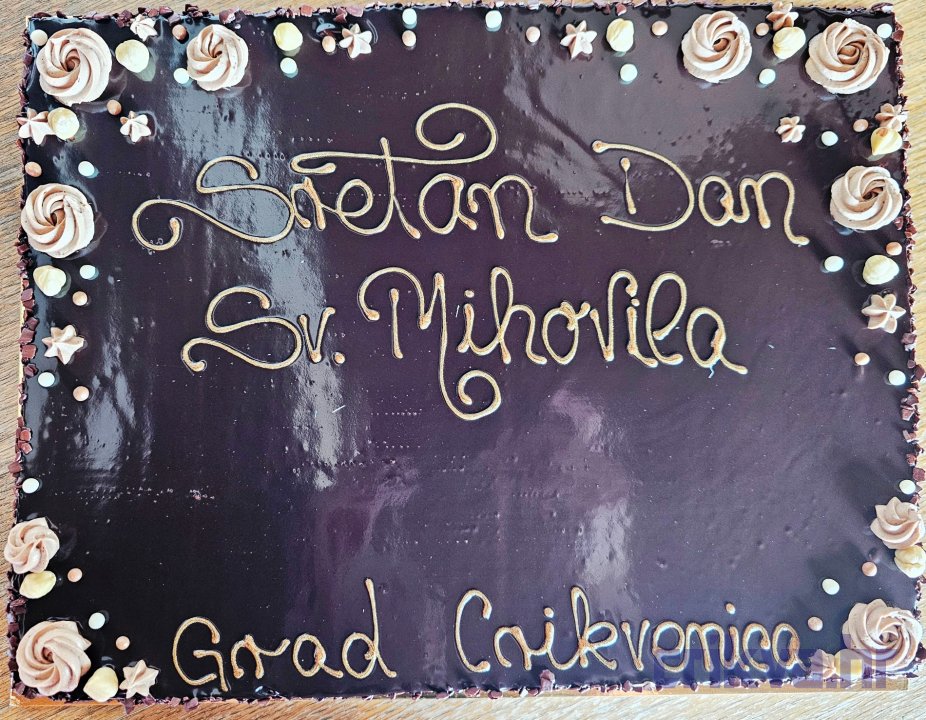 Sretan Dan
Sv. Mihovila
Grad Crikvenica